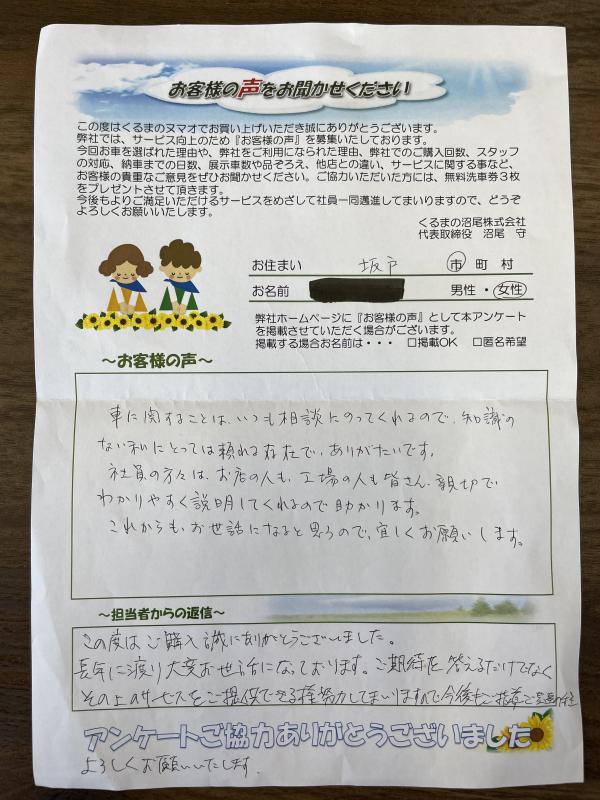 お客様の声をお聞かせください
この度はくるまのヌマオでお買い上げいただき誠にありがとうございます。
弊社では、サービス向上のため『お客様の声』を募集いたしております。
今回お車を選ばれた理由や、弊社をご利用になられた理由、弊社でのご購入回数、スタッフ
の対応、納車までの日数、展示車数や品ぞろえ、他店との違い、サービスに関する事など、
お客様の貴重なご意見をぜひお聞かせください。ご協力いただいた方には、無料洗車券３枚
をプレゼントさせて頂きます。
今後もよりご満足いただけるサービスをめざして社員一同邁進してまいりますので、どうぞ
よろしくお願いいたします。
くるまの沼尾株式会社
代表取締役 沼尾 守
お住まい 坂戸 市 町 村
お名前 男性・女性
弊社ホームページに『お客様の声』として本アンケート
を掲載させていただく場合がございます。
掲載する場合お名前は・・・ □掲載OK □匿名希望
～お客様の声～
車に関することは、いつも相談にのってくれるので、知識の
ない私にとっては頼れる存在で、ありがたいです。
社員の方々は、お店の人も、工場の人も皆さん、親切で
わかりやすく説明してくれるので助かります。
これからも、お世話になると思うので、宜しくお願いします。
～担当者からの返信～
この度はご購入誠にありがとうございました。
長気に渡り大変お世話になっております。ご期待を答えるだけでなく
その上のサービスをご提供できる様努力してまいりますので今後もご指導ご
アンケートご協力ありがとうございました
よろしくお願いいたします。